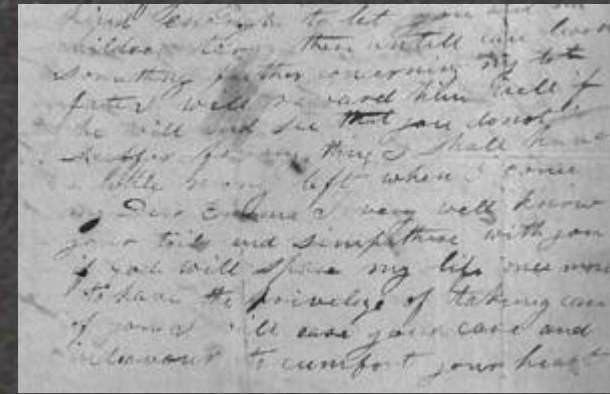 kind enough to let you and
children stay then untill can
something further concerning my
fate I will reward him well if
he will and see that you do not
suffer for any thing I shall have
a little money left when I come
my Dear Emma I very well know
your toils and simpathise with you
if god will spare my life once more
to have the privelige of taking care
of you I will ease your care and
indeavour to cumfort your heart